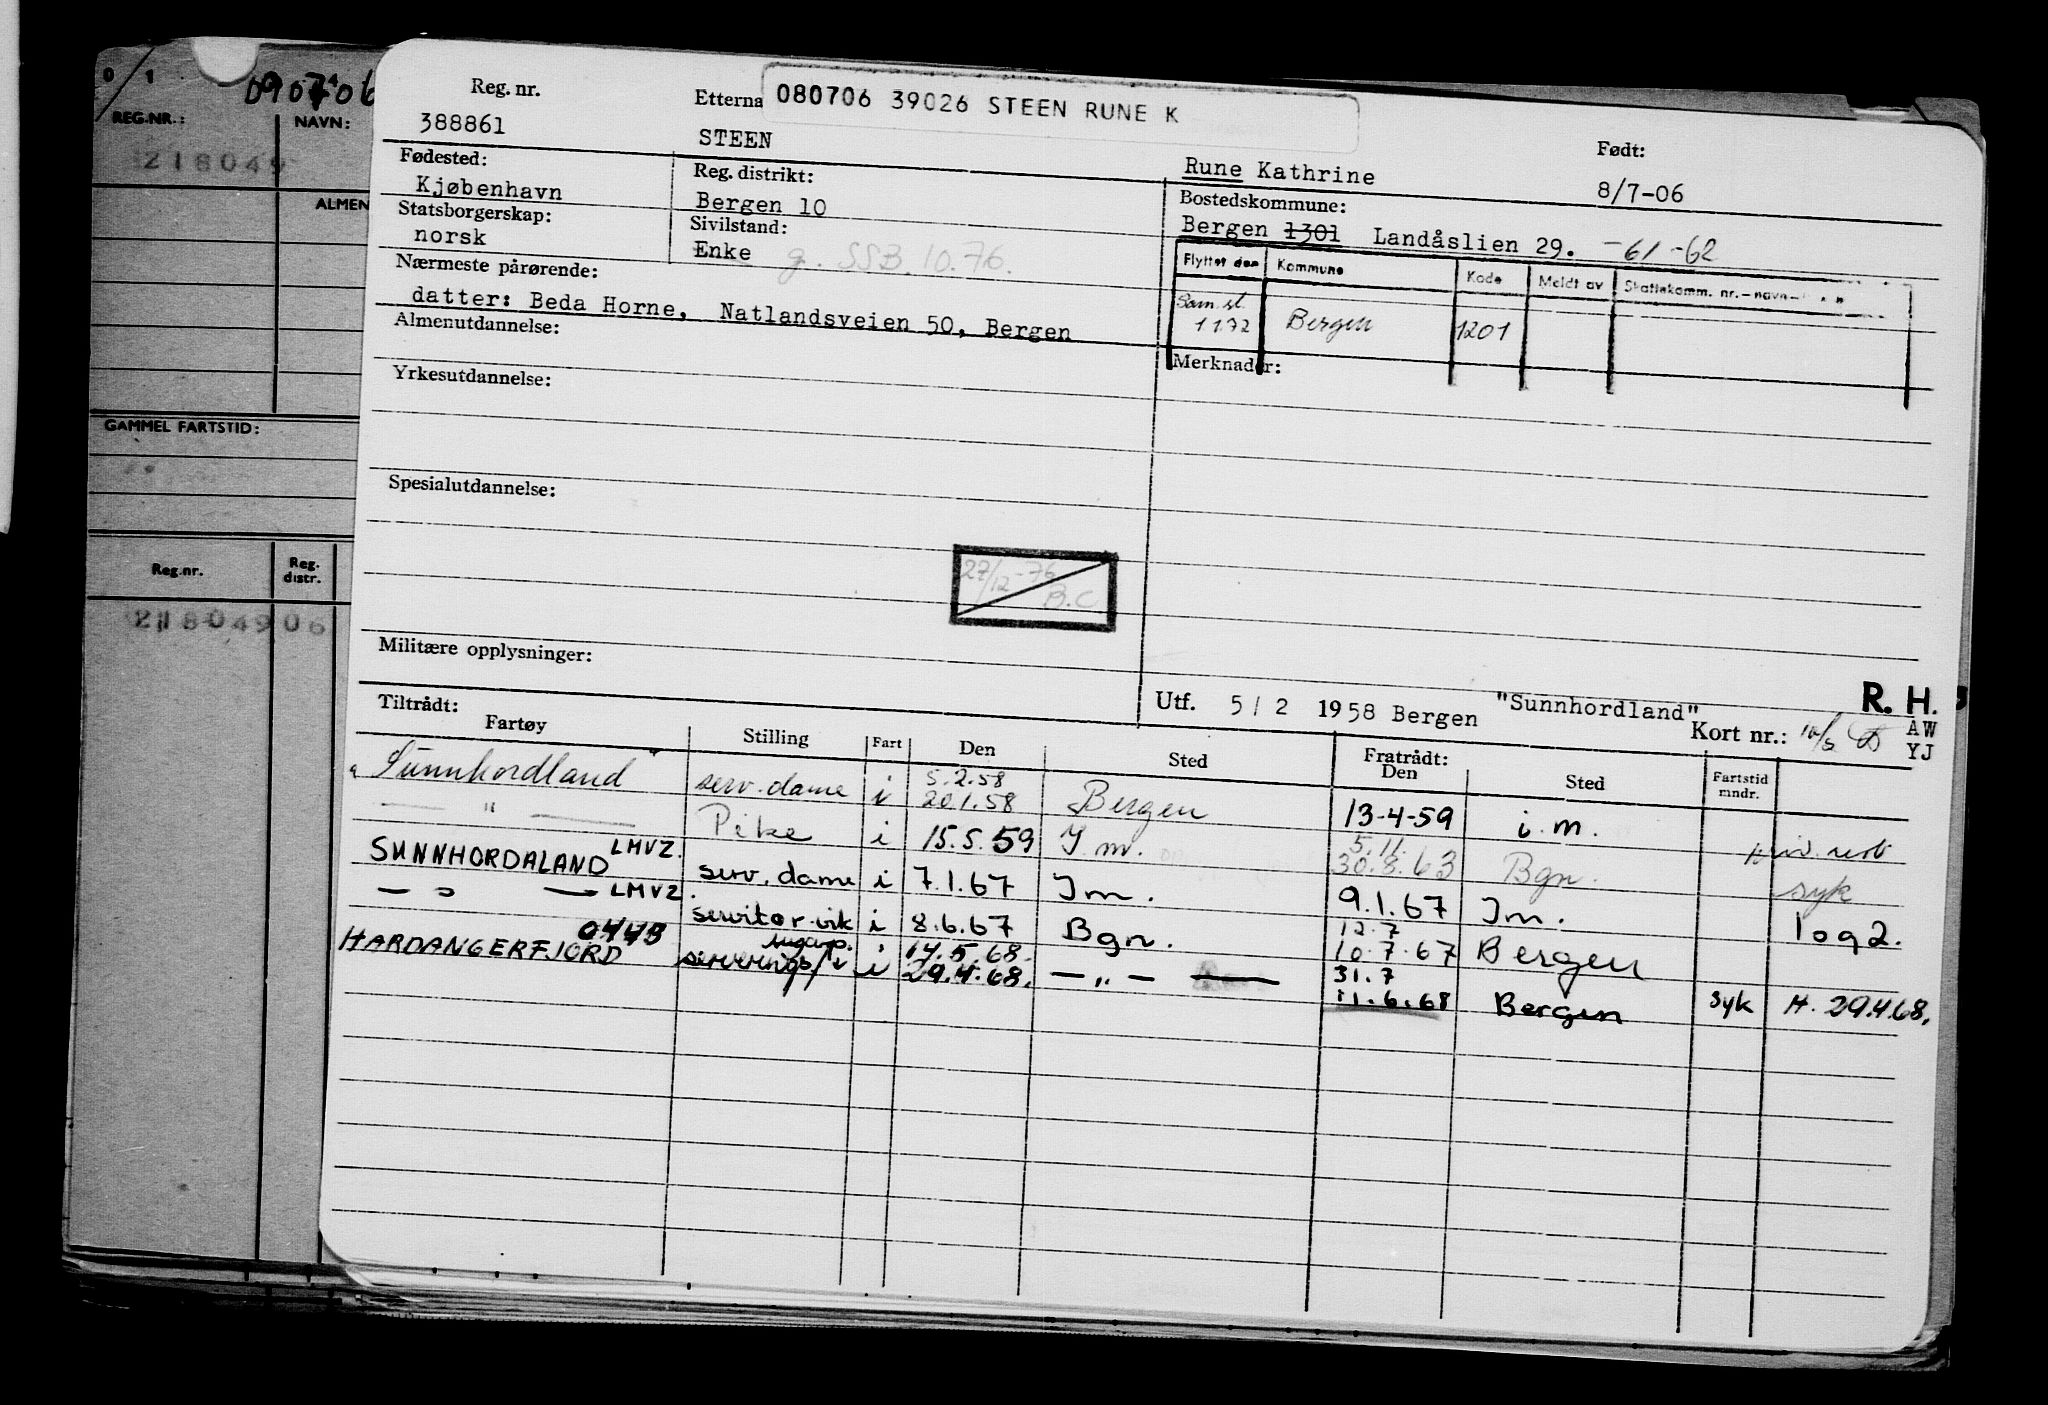 0/1
090706
REG.NR.:
NAVN:
218049
ALMEN
GAMMEL FARTSTID:
Reg.nr.
Reg. distr.
218049 06
Reg. nr.
388861
Etterna
080706 39026 STEEN RUNE K
STEEN
Rune Kathrine
Født:
8/7-06
Fødested:
Kjøbenhavn
Reg. distrikt:
Bergen 10
Bostedskommune:
Bergen 1301 Landåslien 29. -61-62
Statsborgerskap:
norsk
Sivilstand:
Enke g. SSB.10.76.
Flyttet den Kommune Kode Meldt av Skattekomm. nr.-navn-
1172 Bergen 1201
Nærmeste pårørende:
datter: Beda Horne, Natlandsveien 50, Bergen
Almenutdannelse:
Merknader:
Yrkesutdannelse:
Spesialutdannelse:
27/12-76 B.C
Militære opplysninger:
Utf. 5/2 1958 Bergen "Sunnhordland"
R. H.
AW
YJ
Kort nr.:
Tiltrådt:
Fartøy Stilling Fart Den Sted Fratrådt: Den Sted Fartstid mndr.
"Sunnhordland" serv.dame i 5.2.58 20.1.58 Bergen 13-4-59 i.m.
— " — Pike i 15.5.59 I m. 5.11. 30.8.63 Bgn. syk
SUNNHORDALAND LMVZ. serv. dame i 7.1.67 Im. 9.1.67 Im. 1 og 2.
— " — LMVZ. servitør vik i 8.6.67 Bgn. 12.7 10.7.67 Bergen
HARDANGERFJORD i 14.5.68. 29.4.68. — " — 31.7 11.6.68 Bergen syk H. 29.4.68.